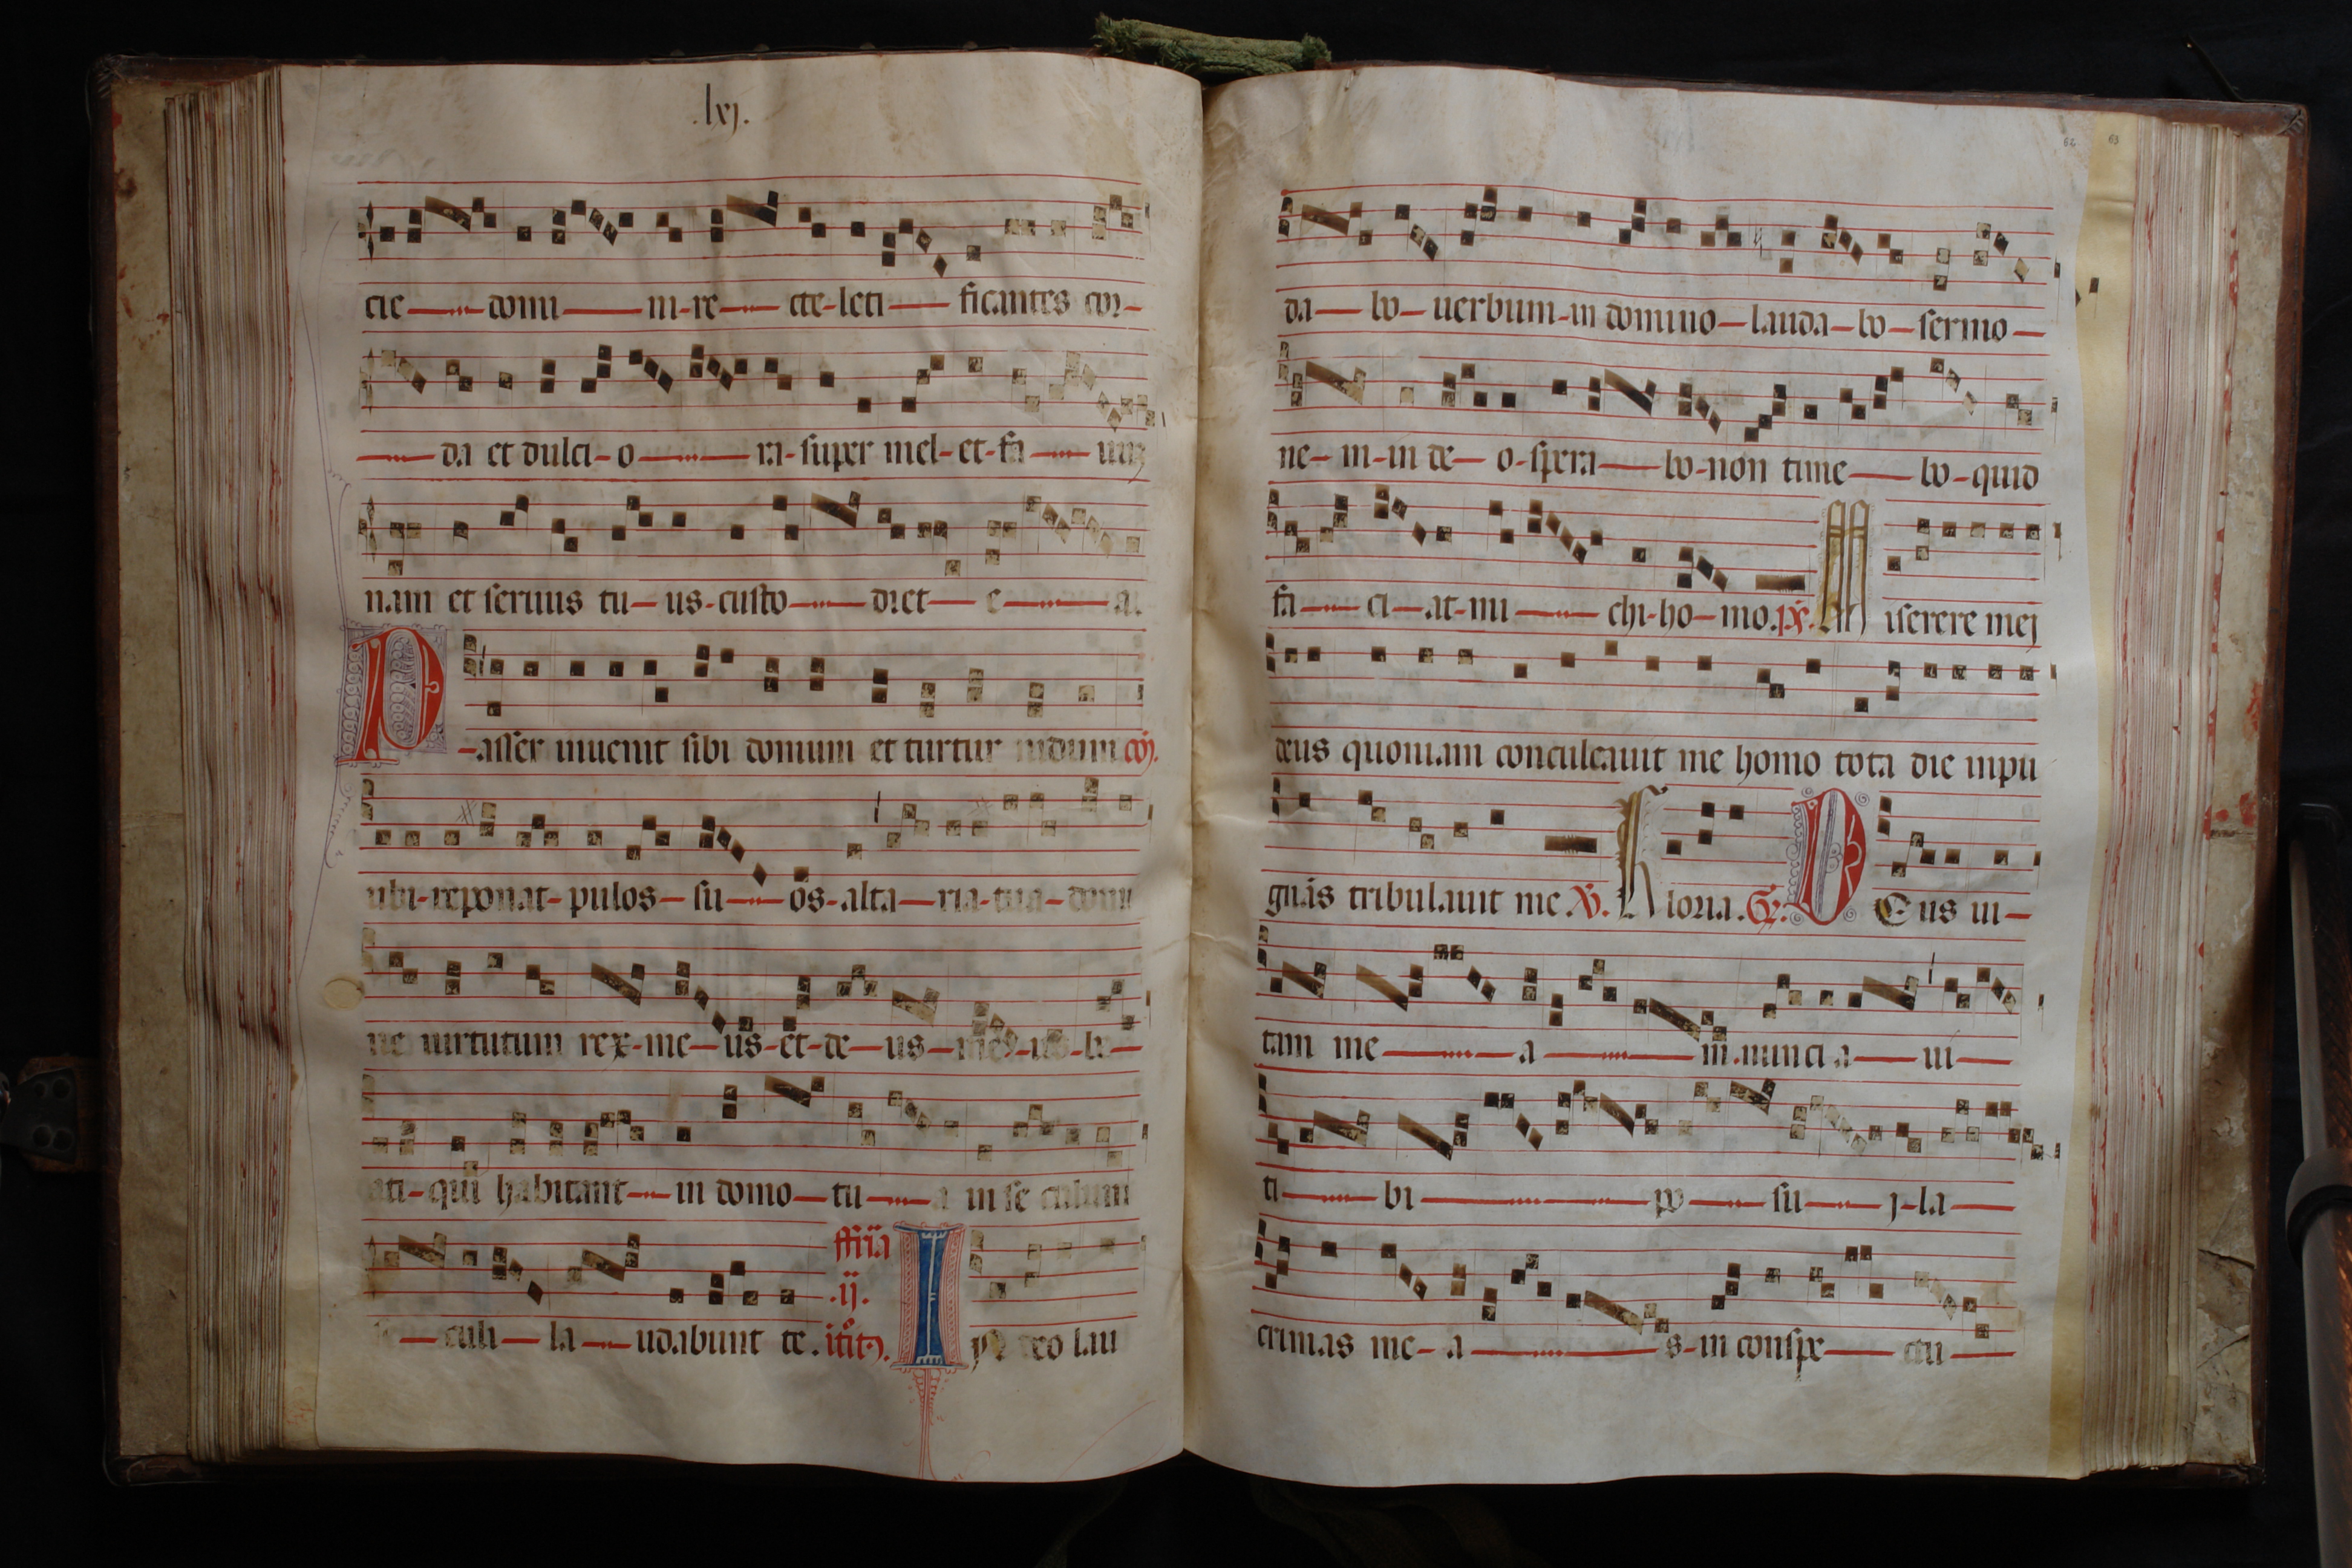 .lxj.
cie domi ni re cte leti ficantes cor
da et dulci o ra super mel et fa uuz
nam et seruus tu us custo diet e a.
P asser inuenit sibi domum et turtur nidum
ubi reponat pulos su os altaria tua domi
ne uirtutum rex me us et de us be
ati qui habitant in domo tu a in se culum
culi la udabunt te.
ffria
.ij.
I N deo lau
62 63
da bo uerbum in domino lauda bo sermo
ne m in de o spera bo non time bo quid
fa ci at mi chi ho mo. ps. M iserere mej
deus quoniam conculcauit me homo tota die inpu
gnãs tribulauit me. V. G loria. Gr. D Eus ui
tam me a m nunci a ui
ti bi po su j la
crimas me a s in conspe ctu